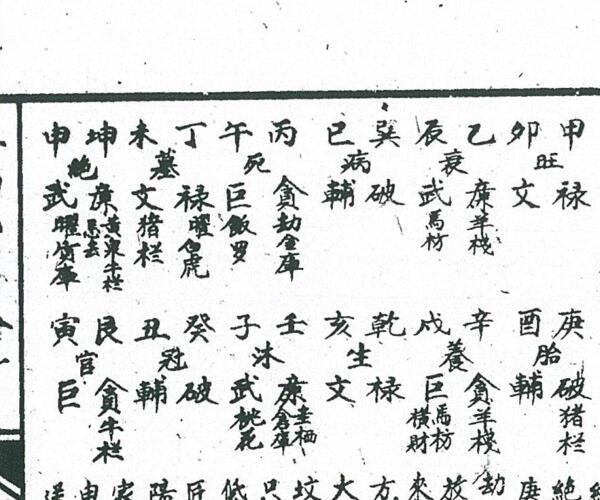 甲禄
旺
卯文
乙廉羊棧
衰
辰武馬枋
巽破
病
巳輔
丙貪劫金庫
死
午巨飯罗
丁禄曜白虎
墓
未文猪栏
坤廉黄泉牛栏
絶
申武曜
庚破猪栏
胎
酉輔
辛貪羊棧
養
戌巨馬枋横財
乾禄
生
亥文
壬廉倉庫
沐
子武桃花
癸破
冠
丑輔
艮貪牛栏
官
寅巨
絶
庚
劫
放
來
方
大
坟
只
低
匠
陽
家